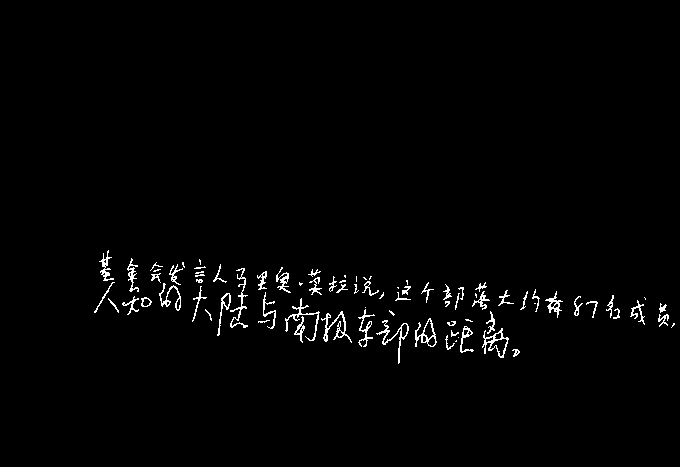 基金会发言人马里奥·莫拉说,这个部落大约有87名成员,
人知的大陆与南极东部的距离。